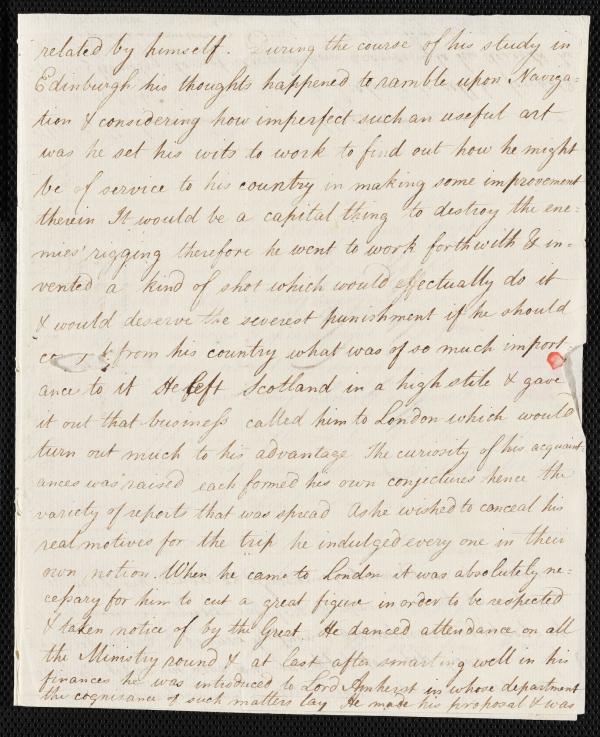 related by himself. During the course of his study in
Edinburgh his thoughts happened to ramble upon Naviga=
tion & considering how imperfect such an useful art
was he set his wits to work to find out how he might
be of service to his country in making some improvement
therein It would be a capital thing to destroy the ene=
mies' rigging therefore he went to work forthwith & in=
vented a kind of shot which would effectually do it
& would deserve the severest punishment if he should
from his country what was of so much import=
ance to it He left Scotland in a high stile & gave
it out that business called him to London which would
turn out much to his advantage The curiosity of his acquaint=
ances was raised each formed his own conjectures hence the
variety of reports that was spread As he wished to canceal his
real motives for the trip he indulged every one in their
own notion. When he came to London it was absolutely ne=
cessary for him to cut a great figure in order to be respected
& taken notice of by the Great. He danced attendance on all
the Ministry round & at last after smarting well in his
finances he was introduced to Lord Amherst in whose department
the cognisance of such matters lay He made his proposal & was